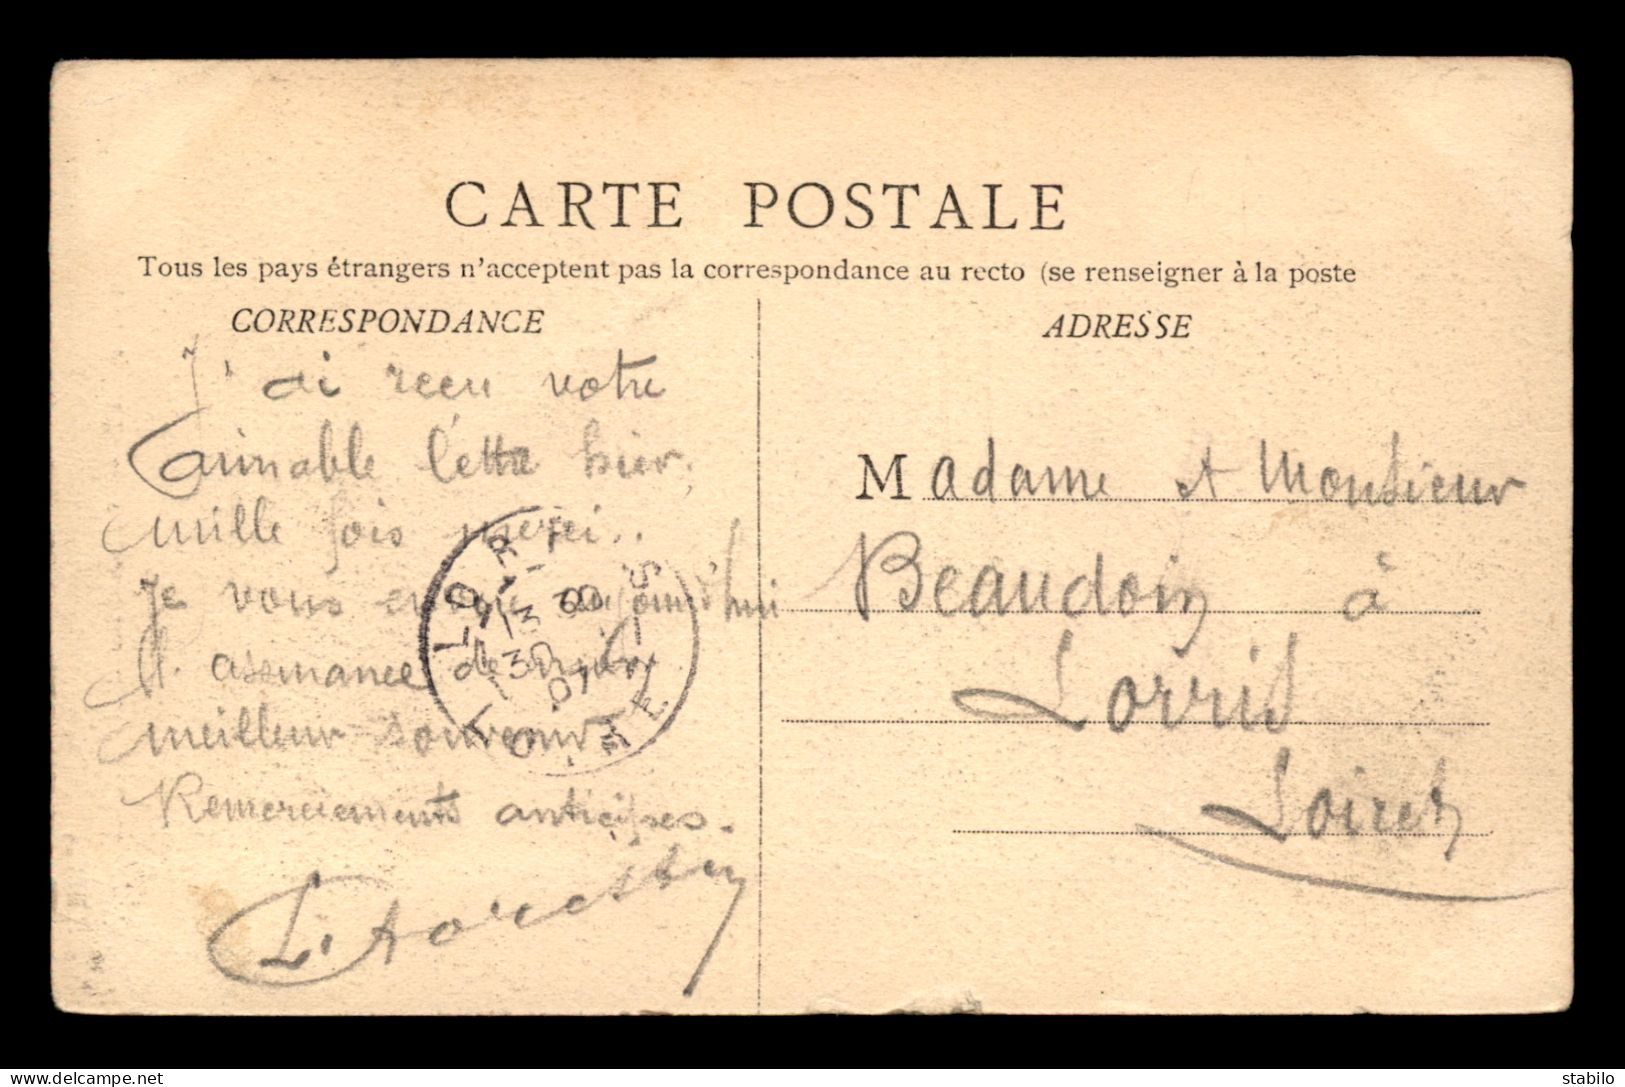 CARTE POSTALE
Tous les pays étrangers n'acceptent pas la correspondance au recto (se renseigner à la poste
CORRESPONDANCE
J'ai recu votre
aimable lettre hier.
mille fois merci..
Je vous envoie aujourd'hui
l'assurance de mon
meilleur souvenir
Remerciements anticipés.
ADRESSE
Madame et Monsieur
Beaudoin à
Lorris
Loiret
LORRIS
LOIRET
stabilo